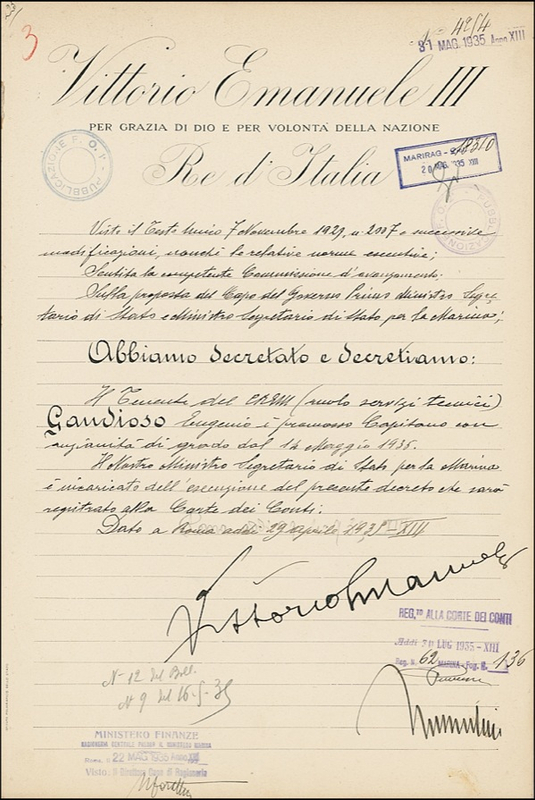 3
4254
31 MAG. 1935 Anno XIII
Vittorio Emanuele III
PER GRAZIA DI DIO E PER VOLONTÀ DELLA NAZIONE
Re d'Italia
PUBBLICAZIONE F. O.
MARIRAG
20 MAG. 1935 XIII
PUBBLICAZIONE
Visto il Testo Unico 7 Novembre 1929, n. 2007 e successive
modificazioni, nonché le relative norme esecutive;
Sentita la competente Commissione d'avanzamento;
Sulla proposta del Capo del Governo Primo Ministro Segre-
tario di Stato e Ministro Segretario di Stato per la Marina;
Abbiamo decretato e decretiamo:
Il Tenente del CREM (ruolo servizi tecnici)
Gaudioso Eugenio è promosso Capitano con
anzianità di grado dal 14 Maggio 1935.
Il Nostro Ministro Segretario di Stato per la Marina
è incaricato dell'esecuzione del presente decreto che sarà
registrato alla Corte dei Conti.
Dato a Roma addì 29 aprile 1935 XIII
Vittorio Emanuele
REG.TO ALLA CORTE DEI CONTI
Addì LUG 1935 - XIII
Reg. N. 62 MARINA - Fog. N. 136
N. 12 del Boll.
N. 9 del 16-5-35
Mussolini
MINISTERO FINANZE
RAGIONERIA CENTRALE PRESSO IL MINISTERO MARINA
Roma, 22 MAG 1935 Anno XIII
Visto: Il Direttore Capo di Ragioneria